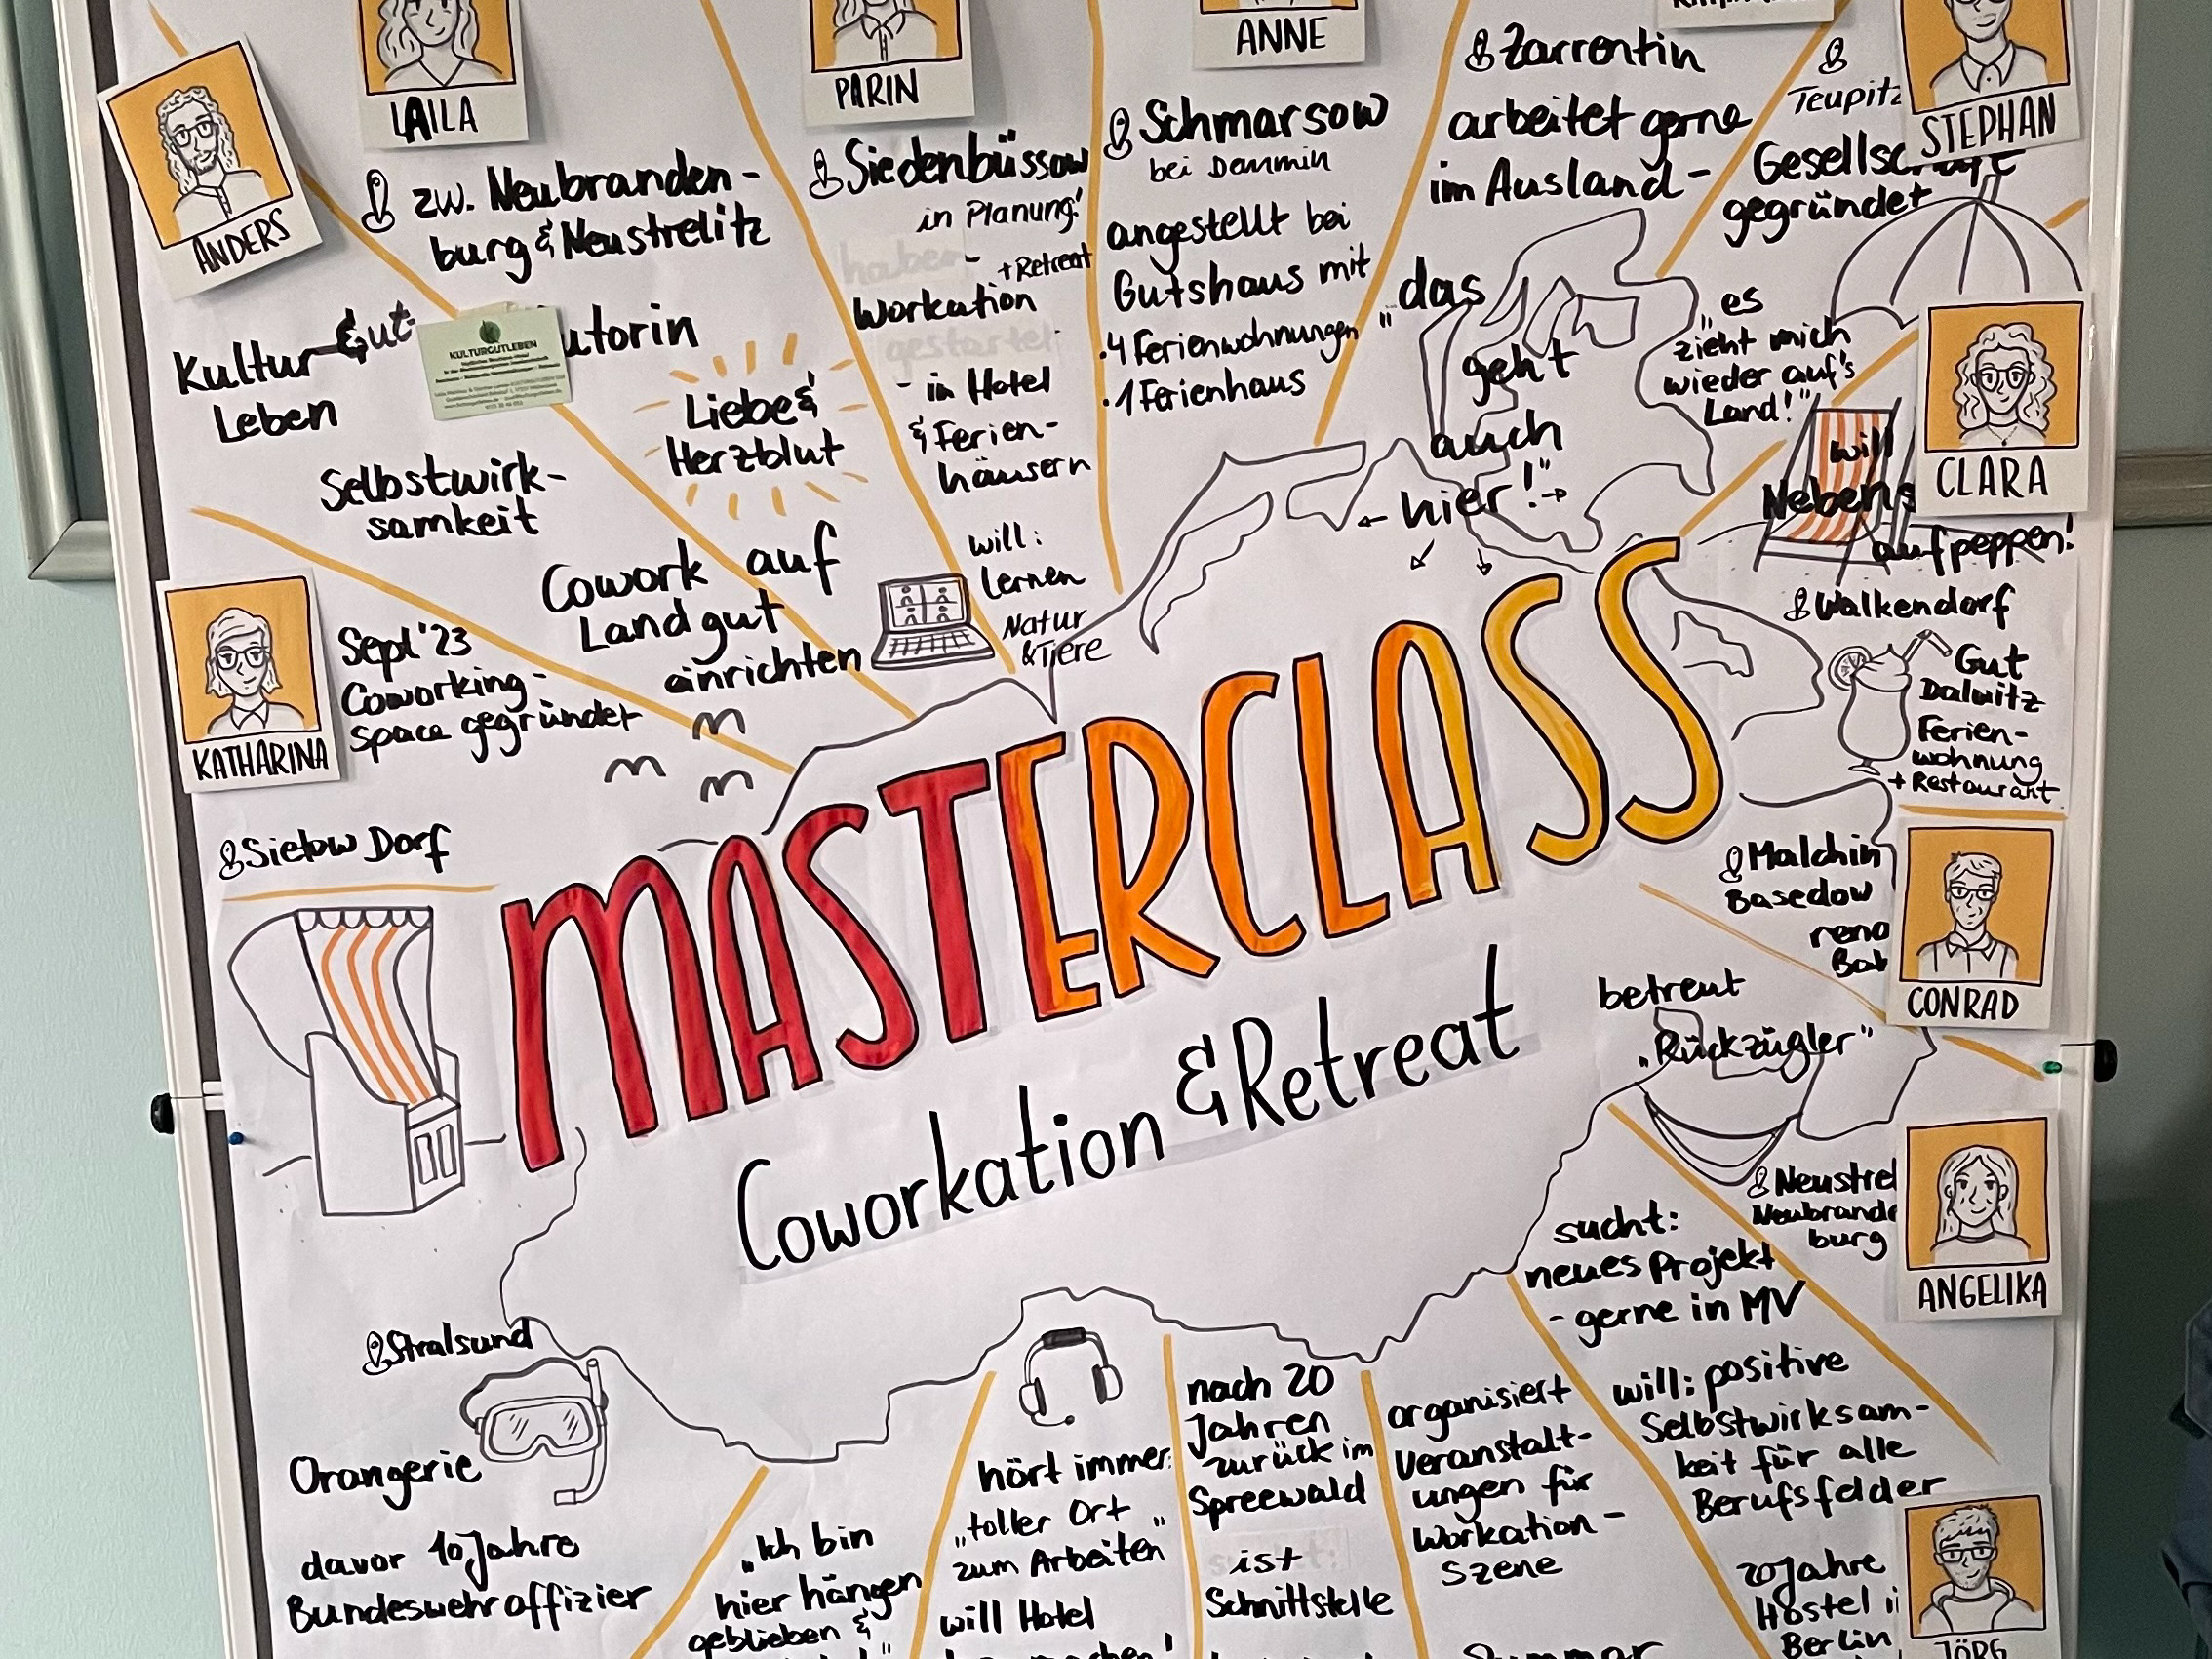 LAILA
PARIN
ANNE
ANDERS
STEPHAN
zw. Neubranden-
burg & Neustrelitz
Kultur-Gut-
Leben
KULTURGUTLEBEN
utorin
Selbstwirk-
samkeit
Liebe &
Herzblut
Cowork auf
Landgut
einrichten
Siedenbüssow
in Planung!
+ Retreat
Workation
- in Hotel
& Ferien-
häusern
will:
lernen
Natur
& Tiere
Schmarsow
bei Demmin
angestellt bei
Gutshaus mit
· 4 Ferienwohnungen
· 1 Ferienhaus
Zarrentin
arbeitet gerne
im Ausland -
"das
geht
auch
hier!"
Teupitz
Gesellschaft
gegründet
"es
zieht mich
wieder auf's
Land!"
CLARA
will
Nebens
aufpeppen!
Walkendorf
Gut
Dalwitz
Ferien-
wohnung
+ Restaurant
KATHARINA
Sept '23
Coworking-
space gegründet
Sielow Dorf
MASTERCLASS
Coworkation & Retreat
Malchin
Basedow
reno
CONRAD
betreut
„Rückzügler"
Neustrel
Neubrande
burg
ANGELIKA
sucht:
neues Projekt
- gerne in MV
will: positive
Selbstwirksam-
keit für alle
Berufsfelder
20 Jahre
Hostel i
Berlin
JÖRG
Stralsund
Orangerie
davor 10 Jahre
Bundeswehroffizier
„Ich bin
hier hängen
geblieben &
hört immer:
„toller Ort
zum Arbeiten"
will Hotel
nach 20
Jahren
zurück im
Spreewald
ist
Schnittstelle
organisiert
Veranstalt-
ungen für
Workation-
Szene